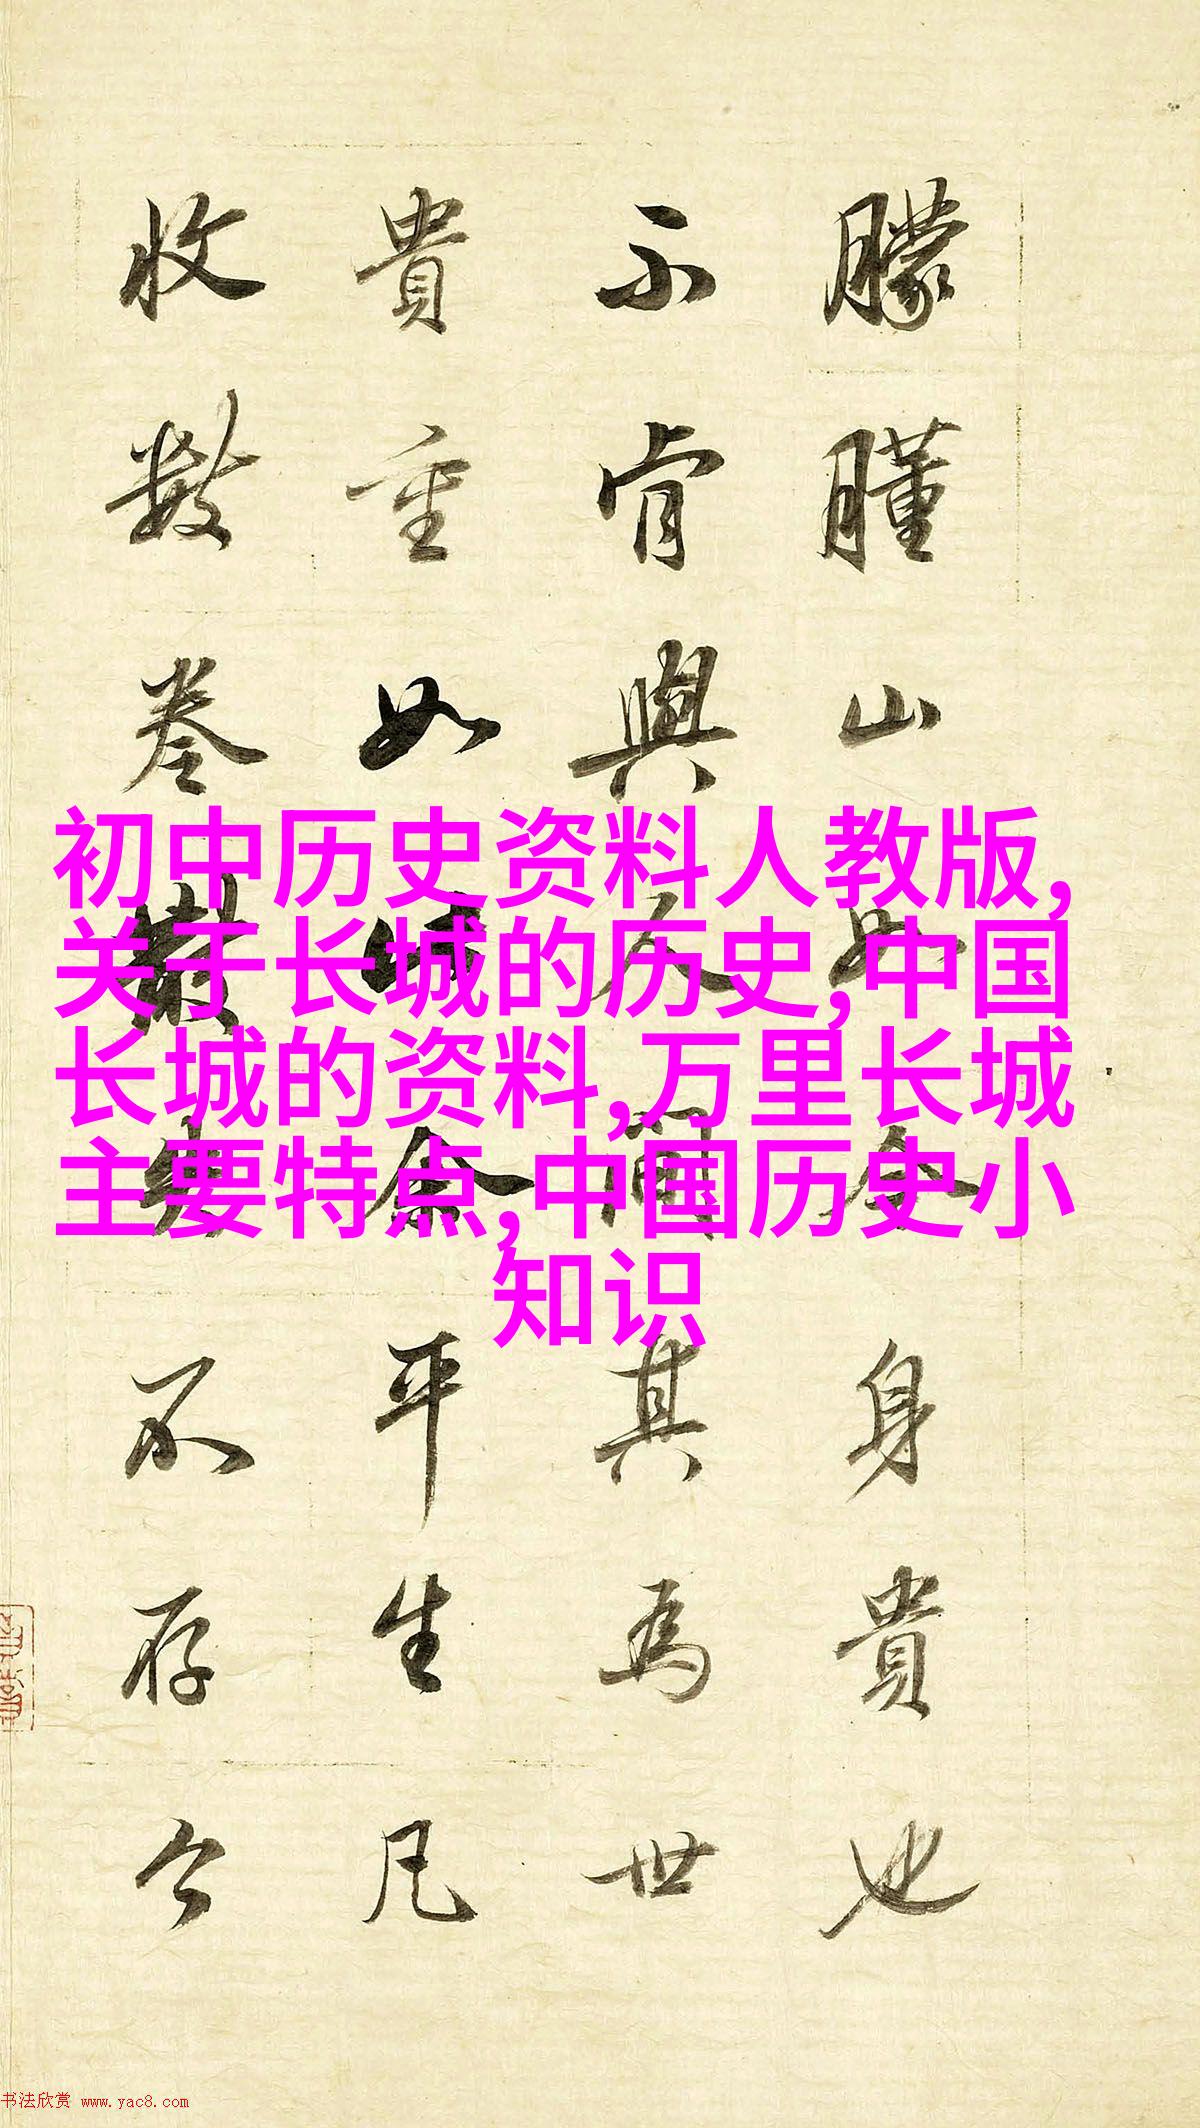 朦朣山如今身貴也
不肯與人間其為世
貴重如此余平生凡
收數卷散失不存今
初中历史资料人教版,
关于长城的历史,中国
长城的资料,万里长城
主要特点,中国历史小
知识
书法欣赏 www.yac8.com